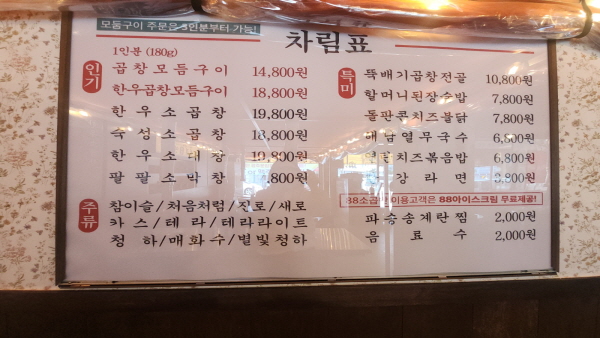 모둠구이 주문은 3인분부터 가능!
차림표
1인분 (180g)
인기
곱창모듬구이 14,800원
한우곱창모듬구이 18,800원
한우소곱창 19,800원
숙성소곱창 18,800원
한우소대창 19,800원
팔팔소막창 800원
주류
참이슬/처음처럼/진로/새로
카스/테라/테라라이트
청하/매화수/별빛청하
특미
뚝배기곱창전골 10,800원
할머니된장술밥 7,800원
돌판콘치즈불닭 7,800원
해남열무국수 6,800원
치즈볶음밥 6,800원
강라면 3,800원
88소곱창 이용고객은 88아이스크림 무료제공!
파송송계란찜 2,000원
음료수 2,000원